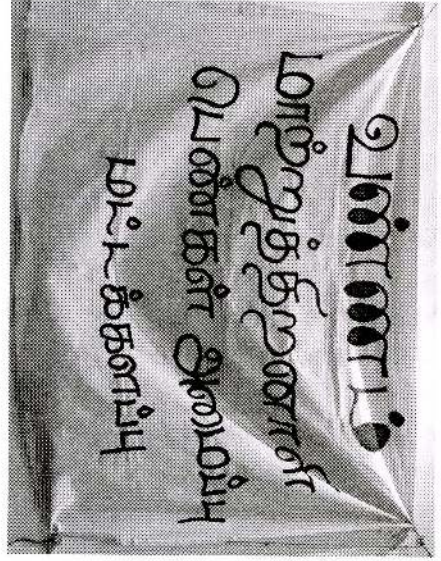 வண்ணம்
மாற்றுத்திறனாளி
பெண்கள் அமைப்பு
மட்டக்களப்பு